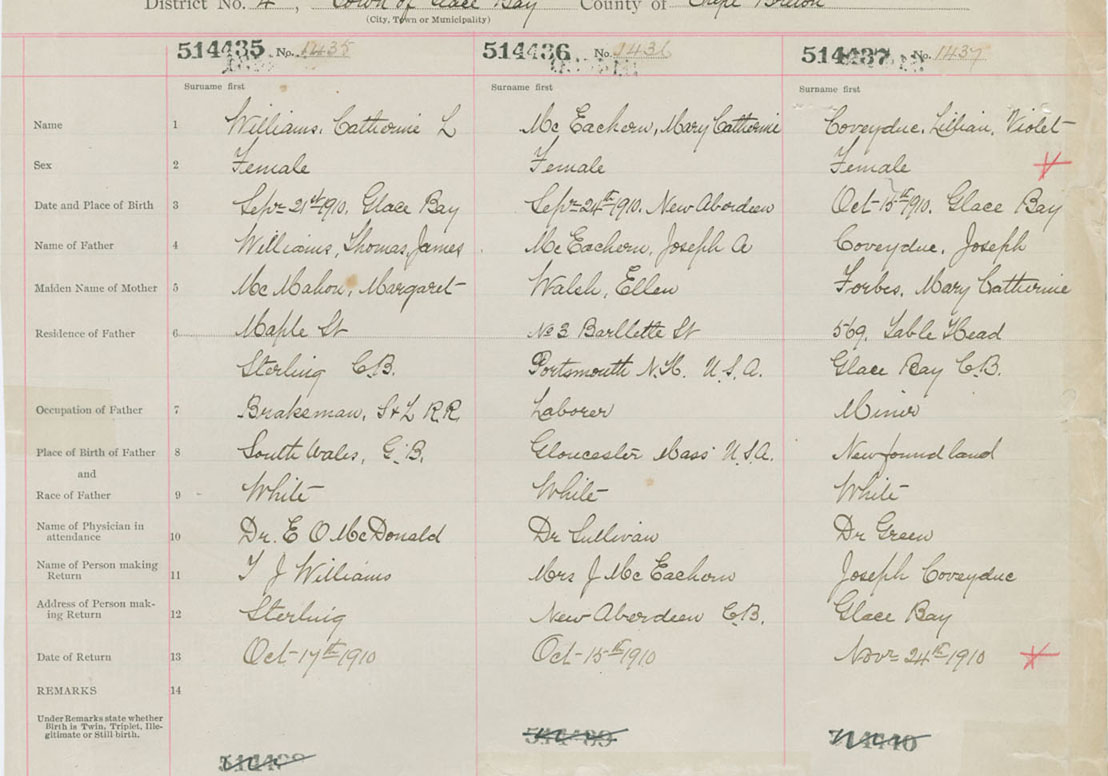 District No. 4, Town of Glace Bay County of Cape Breton
(City, Town or Municipality)
514435 No. 1435 514436 No. 1436 514437 No. 1437
Surname first Surname first Surname first
Name 1 Williams, Catherine L Mc Eachern, Mary Catherine Coveyduc, Lillian, Violet
Sex 2 Female Female Female
Date and Place of Birth 3 Sepr 21st 1910. Glace Bay Sepr 24th 1910. New Aberdeen Oct 15th 1910. Glace Bay
Name of Father 4 Williams, Thomas, James Mc Eachern, Joseph A Coveyduc, Joseph
Maiden Name of Mother 5 Mc Mahon, Margaret Walsh, Ellen Forbes, Mary Catherine
Residence of Father 6 Maple St No 3 Barllette St 569, Table Head
Sterling C.B. Portsmouth N.H. U.S.A. Glace Bay C.B.
Occupation of Father 7 Brakeman, S & L R.R. Laborer Miner
Place of Birth of Father 8 South Wales, G.B. Gloucester Mass U.S.A. Newfoundland
and
Race of Father 9 White White White
Name of Physician in
attendance 10 Dr. E O McDonald Dr Sullivan Dr Green
Name of Person making
Return 11 T J Williams Mrs J Mc Eachern Joseph Coveyduc
Address of Person mak-
ing Return 12 Sterling New Aberdeen C.B. Glace Bay
Date of Return 13 Oct 17th 1910 Oct 15th 1910 Novr 24th 1910
REMARKS 14
Under Remarks state whether
Birth is Twin, Triplet, Ille-
gitimate or Still birth.